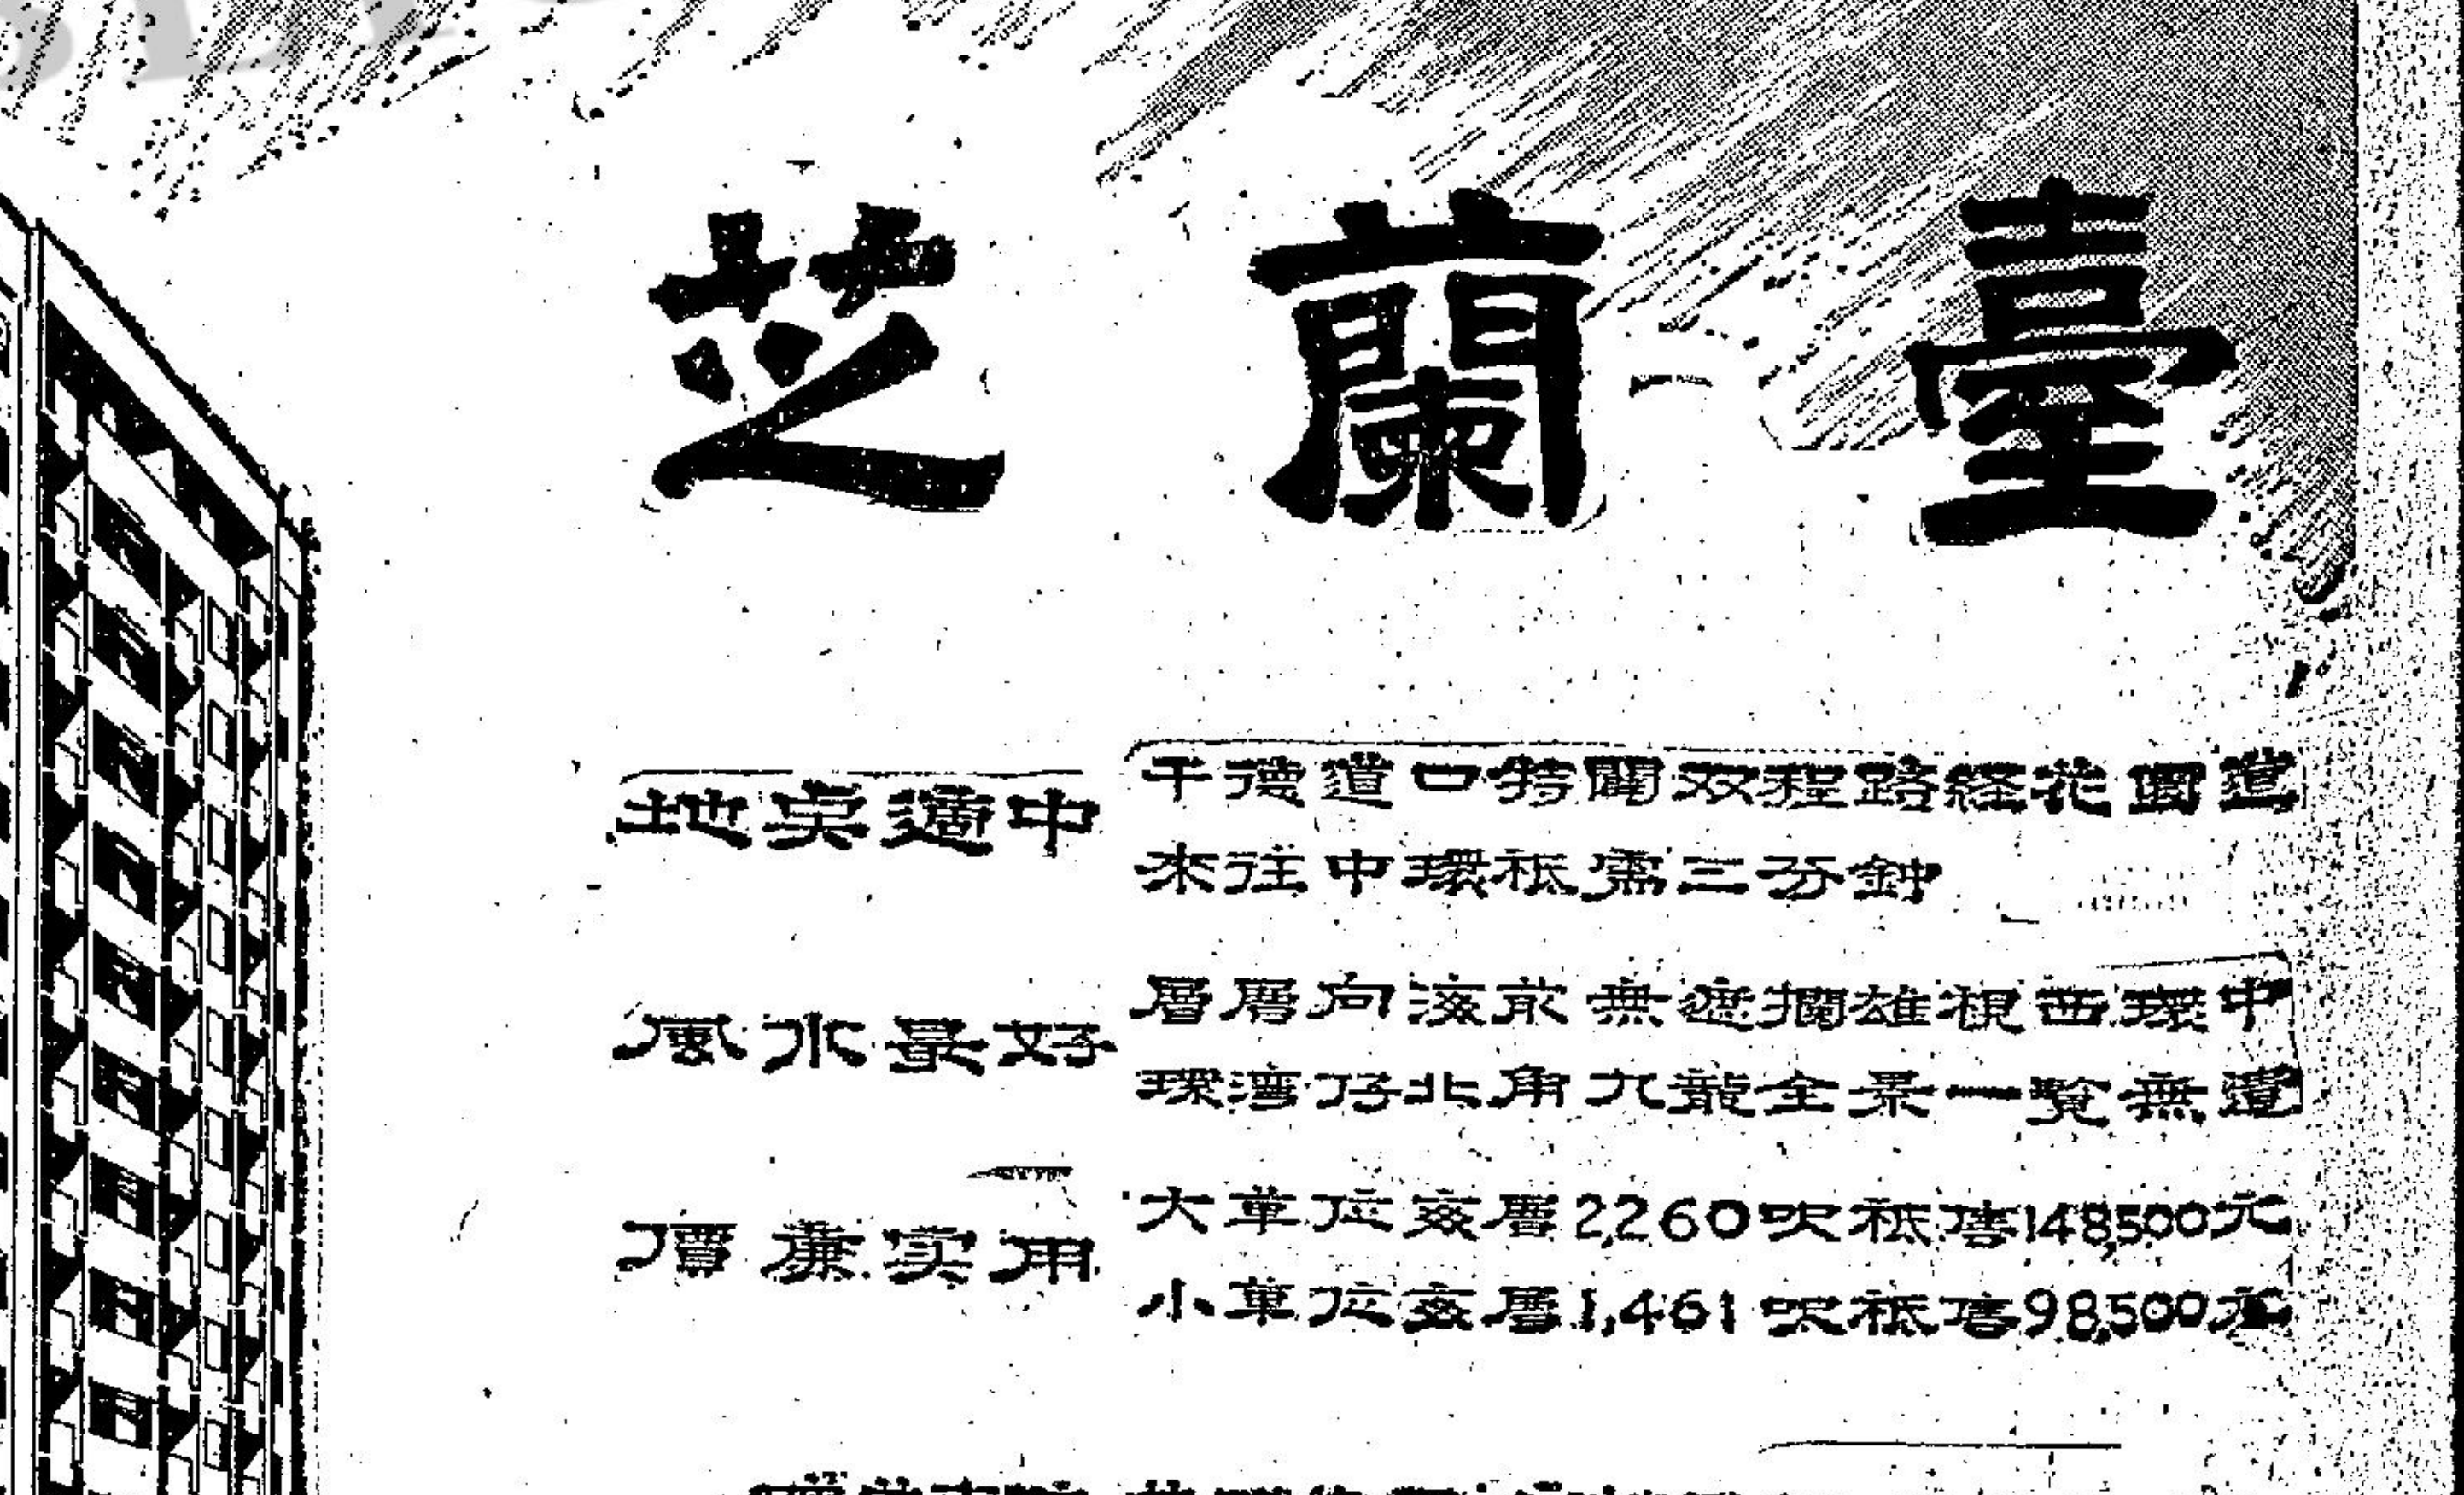 芝蘭臺
地点適中
干德道口特闢双程路経花園道
來往中環祗需三分鈡
風水最好
層層向海前無遮攔雄視西環中
環湾仔北角九龍全景一覧無遺
價廉实用
大單位每層2,260呎祗售148,500元
小單位每層1,461呎祗售98,500元